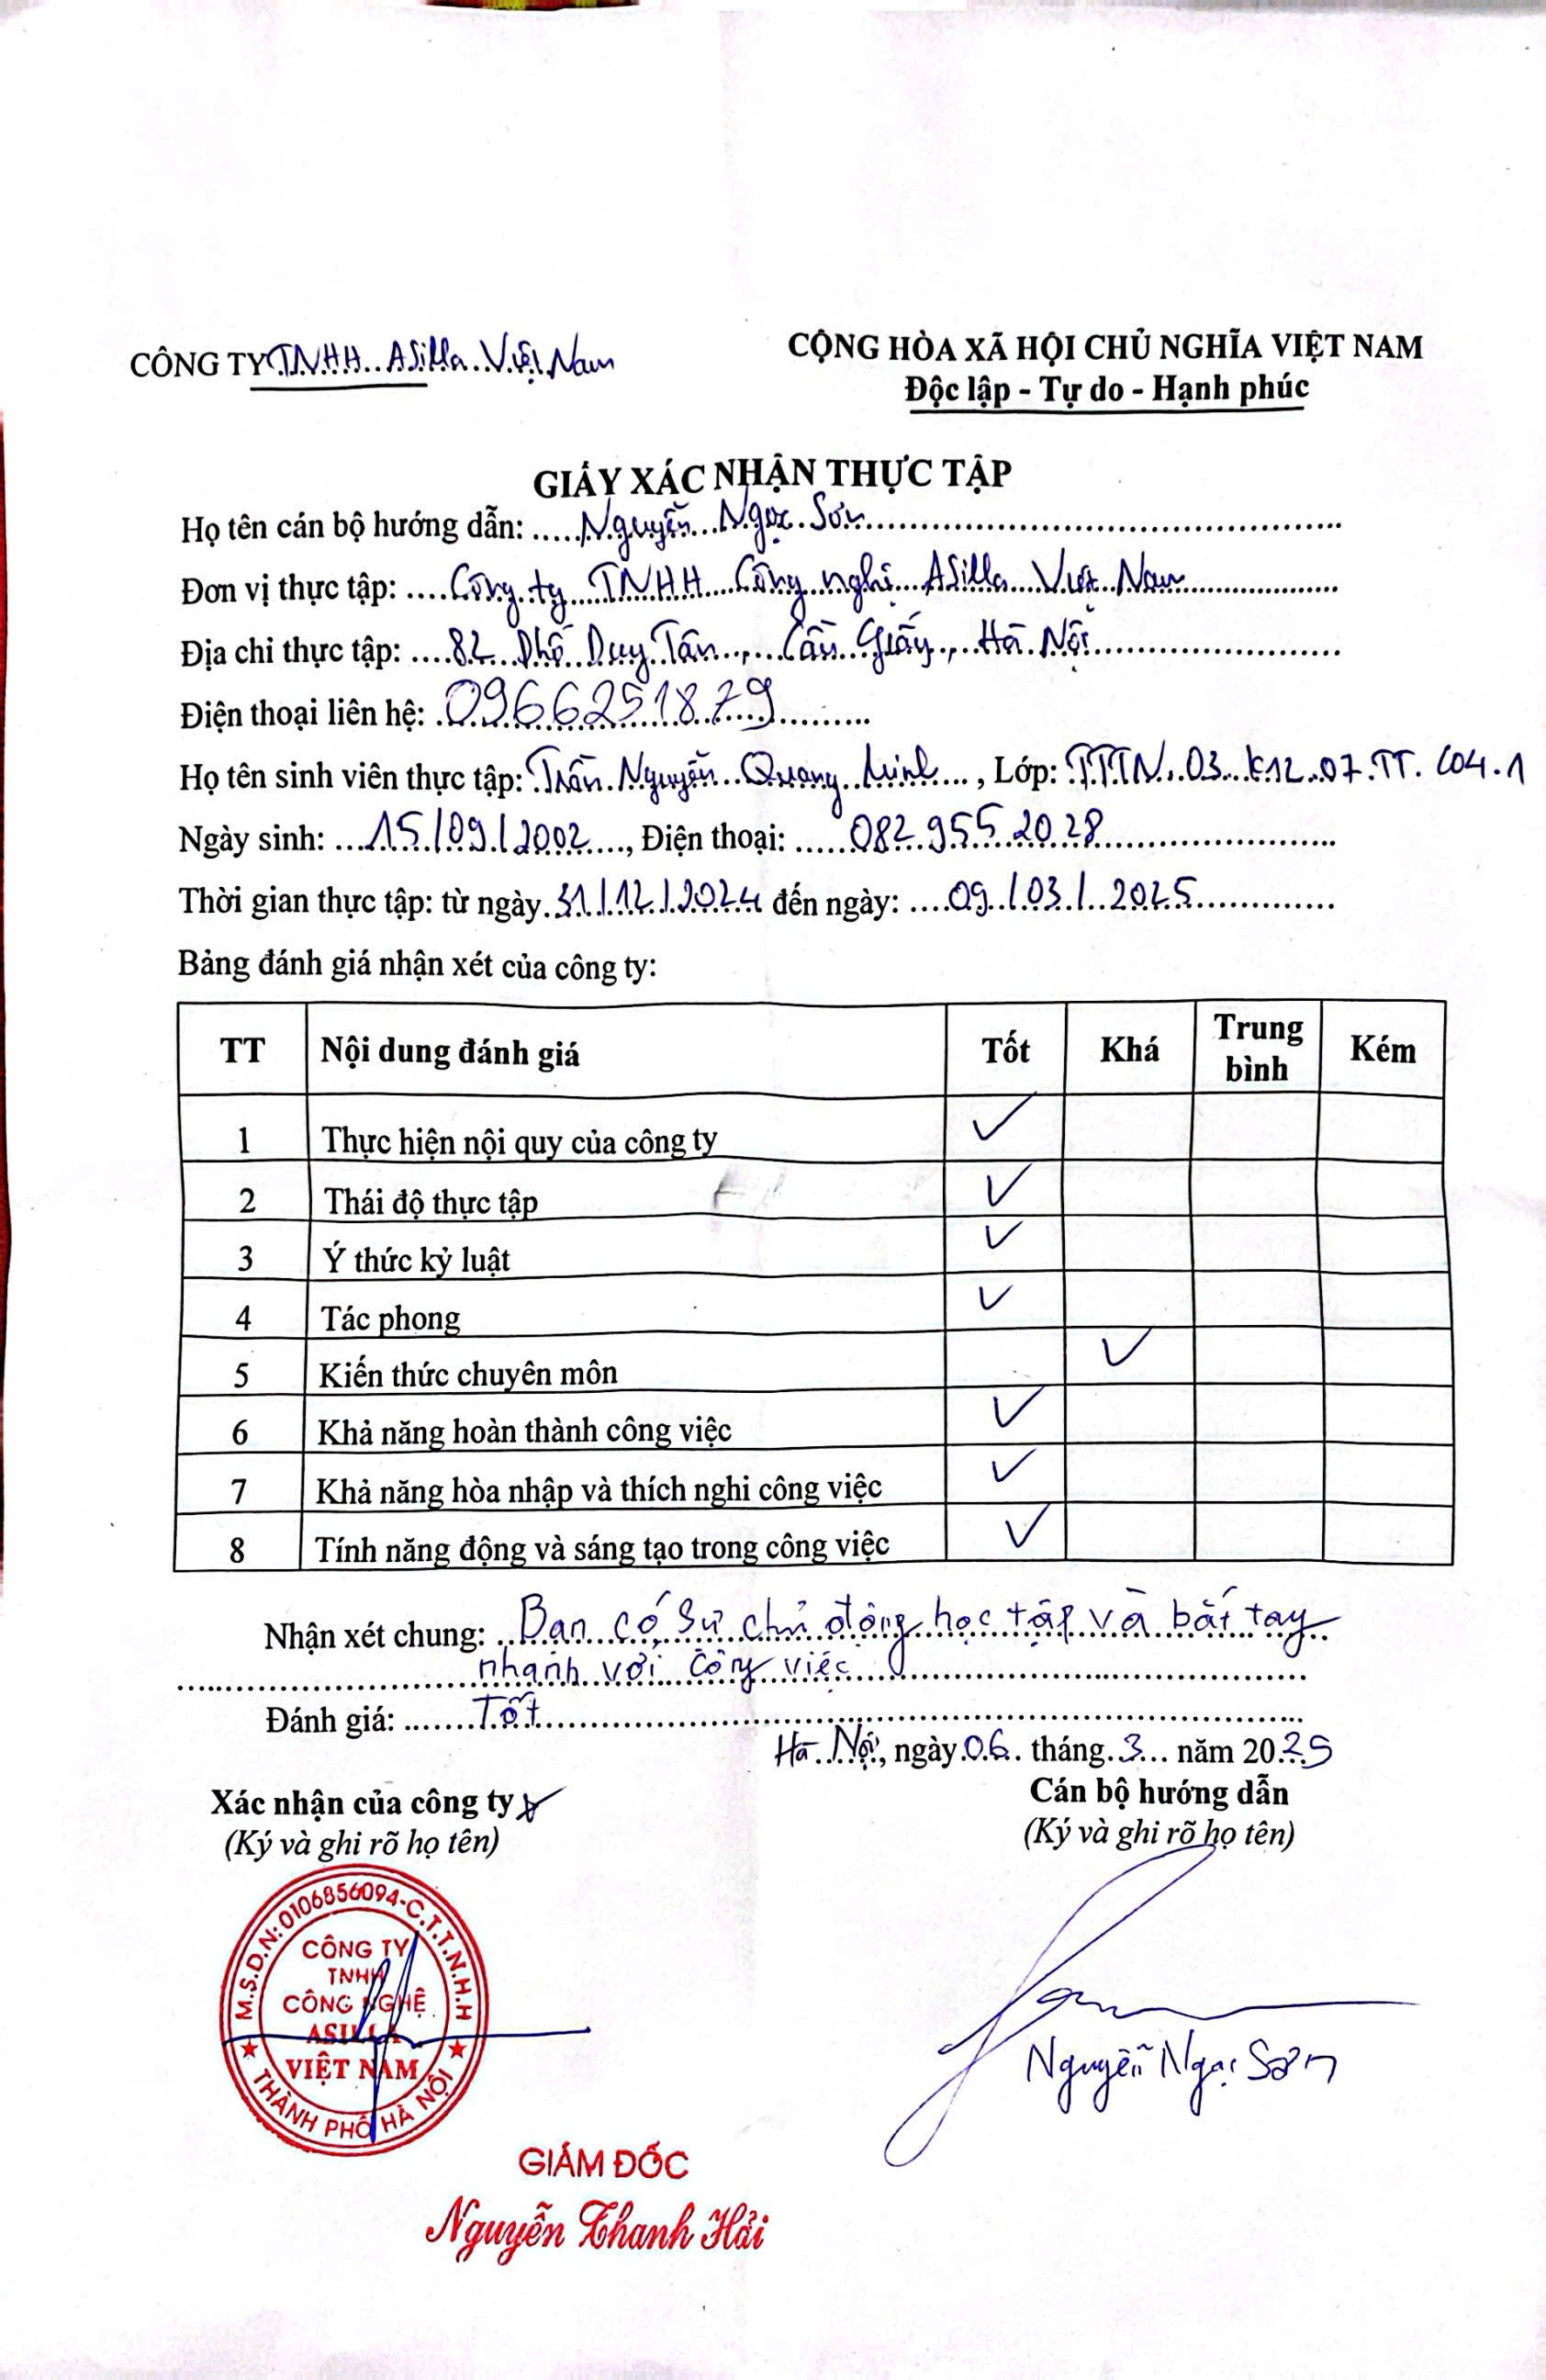 CÔNG TY TNHH Asilla Việt Nam
CỘNG HÒA XÃ HỘI CHỦ NGHĨA VIỆT NAM
Độc lập - Tự do - Hạnh phúc
GIẤY XÁC NHẬN THỰC TẬP
Họ tên cán bộ hướng dẫn: Nguyễn Ngọc Sơn
Đơn vị thực tập: Công ty TNHH Công nghệ Asilla Việt Nam
Địa chỉ thực tập: 82 Phố Duy Tân, Cầu Giấy, Hà Nội
Điện thoại liên hệ: 0966251879
Họ tên sinh viên thực tập: Trần Nguyễn Quang Minh, Lớp: TTTN.03.K12.07.TT.C04.1
Ngày sinh: 15/09/2002, Điện thoại: 082 955 2028
Thời gian thực tập: từ ngày 31/12/2024 đến ngày: 09/03/2025
Bảng đánh giá nhận xét của công ty:
TT Nội dung đánh giá Tốt Khá Trung bình Kém
1 Thực hiện nội quy của công ty ✓
2 Thái độ thực tập ✓
3 Ý thức kỷ luật ✓
4 Tác phong ✓
5 Kiến thức chuyên môn ✓
6 Khả năng hoàn thành công việc ✓
7 Khả năng hòa nhập và thích nghi công việc ✓
8 Tính năng động và sáng tạo trong công việc ✓
Nhận xét chung: Bạn có sự chủ động học tập và bắt tay
nhanh với công việc
Đánh giá: Tốt
Hà Nội, ngày 06 tháng 3 năm 2025
Xác nhận của công ty
(Ký và ghi rõ họ tên)
Cán bộ hướng dẫn
(Ký và ghi rõ họ tên)
M.S.D.N: 0106856094-C.T.T.N.H.H
CÔNG TY
TNHH
CÔNG NGHỆ
ASILLA
VIỆT NAM
THÀNH PHỐ HÀ NỘI
Nguyễn Ngọc Sơn
GIÁM ĐỐC
Nguyễn Thanh Hải